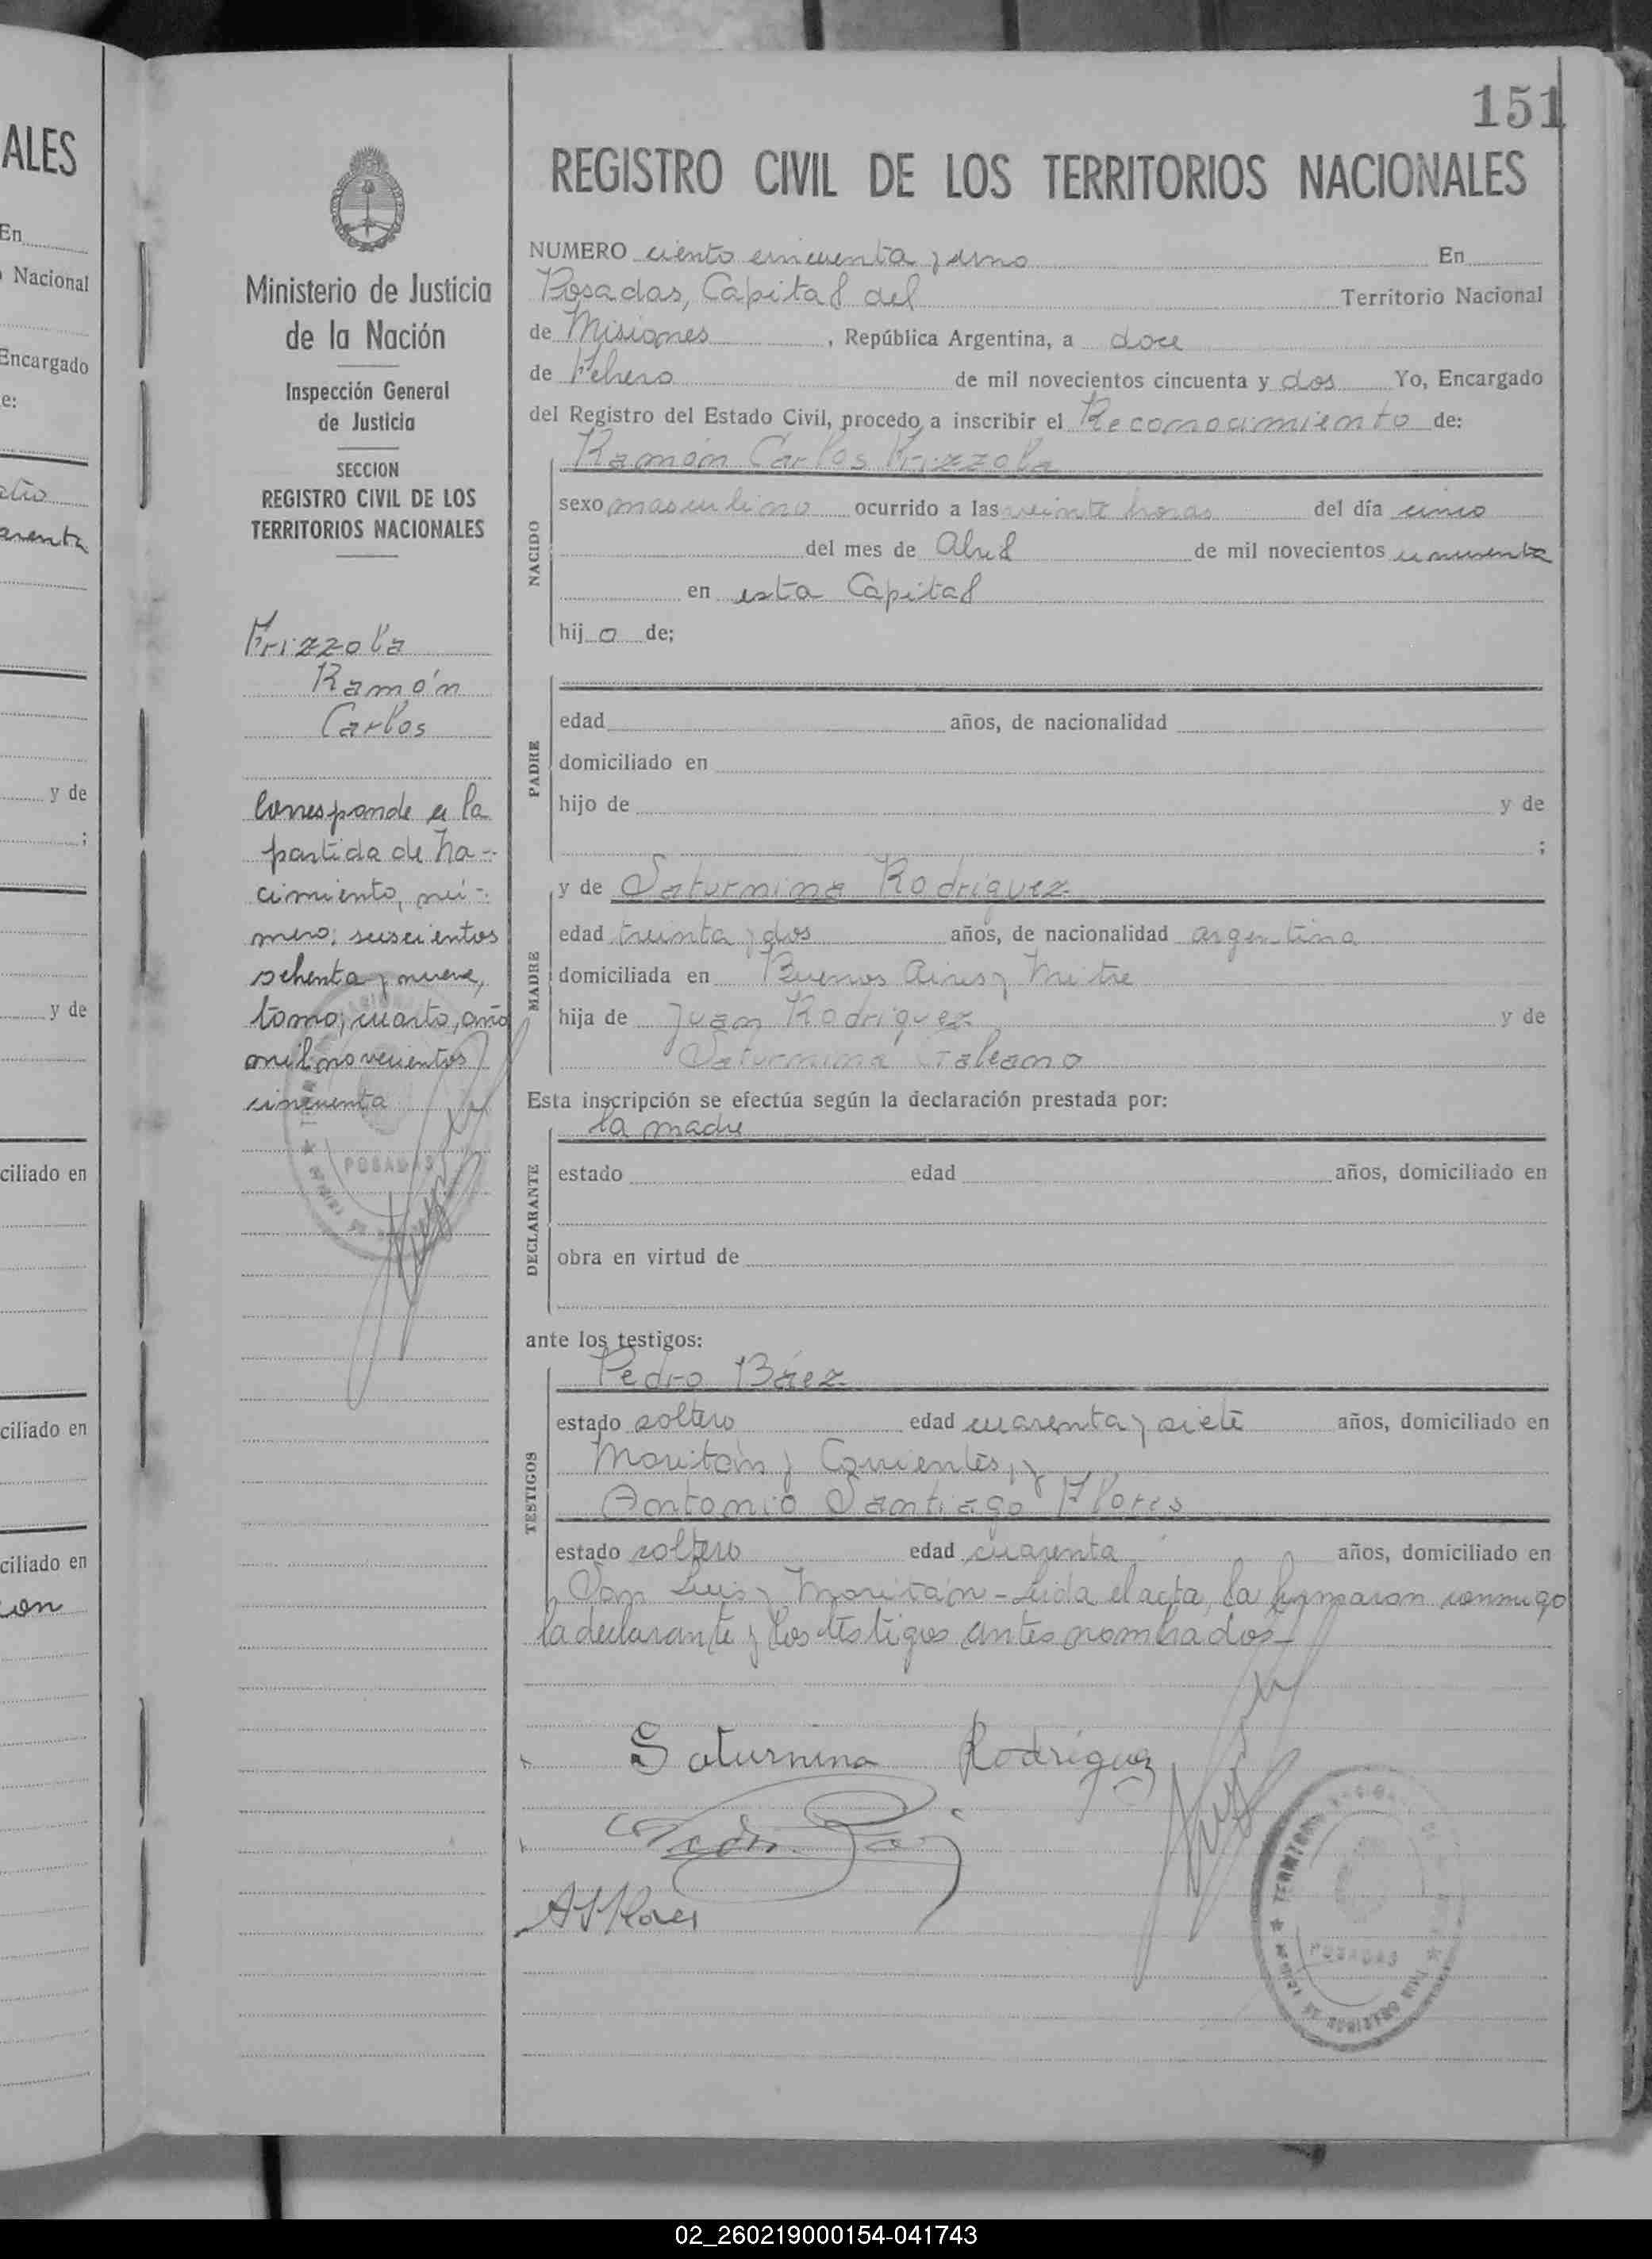 ALES
En
Nacional
Encargado
e:
y de
;
y de
ciliado en
ciliado en
ciliado en
151
Ministerio de Justicia
de la Nación
Inspección General
de Justicia
SECCION
REGISTRO CIVIL DE LOS
TERRITORIOS NACIONALES
Frizzola
Ramón
Carlos
Corresponde a la
partida de na-
cimiento, nú-
mero; seiscientos
ochenta y nueve,
tomo; cuarto, año
mil novecientos
cincuenta
POSADAS
REGISTRO CIVIL DE LOS TERRITORIOS NACIONALES
NUMERO ciento cincuenta y uno En
Posadas, Capital del Territorio Nacional
de Misiones , República Argentina, a doce
de Febrero de mil novecientos cincuenta y dos Yo, Encargado
del Registro del Estado Civil, procedo a inscribir el Reconocimiento de:
Ramón Carlos Frizzola
NACIDO
sexo masculino ocurrido a las veinte horas del día cinco
del mes de Abril de mil novecientos cincuenta
en esta Capital
hij o de;
PADRE
edad años, de nacionalidad
domiciliado en
hijo de y de
;
MADRE
y de Saturnina Rodríguez
edad treinta y dos años, de nacionalidad argentina
domiciliada en Buenos Aires y Mitre
hija de Juan Rodríguez y de
Saturnina Galeano
Esta inscripción se efectúa según la declaración prestada por:
la madre
DECLARANTE
estado edad años, domiciliado en
obra en virtud de
ante los testigos:
TESTIGOS
Pedro Báez
estado soltero edad cuarenta y siete años, domiciliado en
Moritán y Corrientes, y
Antonio Santiago Flores
estado soltero edad cuarenta años, domiciliado en
San Luis y Moritán - Leida el acta, la firmaron conmigo
la declarante y los testigos antes nombrados-
Saturnina Rodriguez
POSADAS
02_260219000154-041743